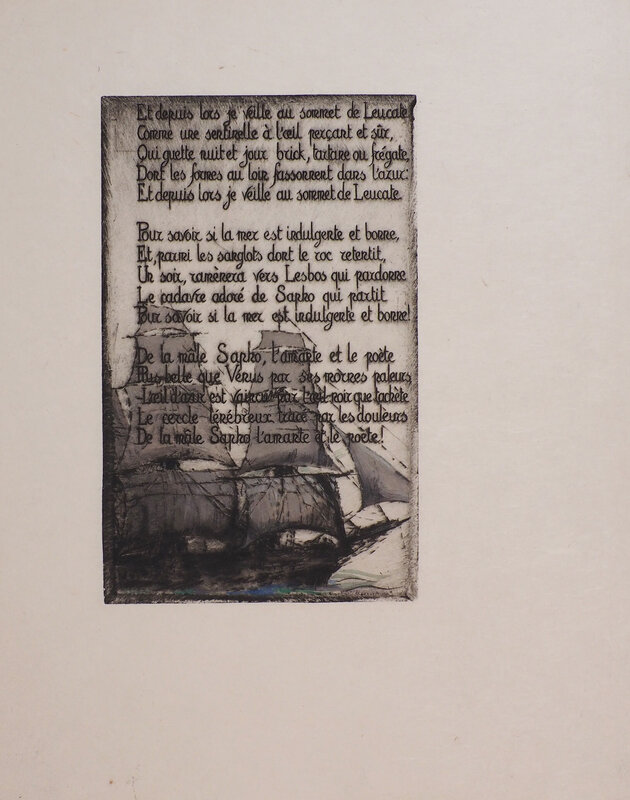 Et depuis lors je veille au sommet de Leucate
Comme une sentinelle à l'œil perçant et sûr,
Qui guette nuit et jour brick, tartane ou frégate,
Dont les formes au loin frissonnent dans l'azur:
Et depuis lors je veille au sommet de Leucate

Pour savoir si la mer est indulgente et bonne,
Et, parmi les sanglots dont le roc retentit,
Un soir, ramènera vers Lesbos qui pardonne
Le cadavre adoré de Sapho qui partit
Pour savoir si la mer est indulgente et bonne!

De la mâle Sapho, l'amante et le poète
Plus belle que Vénus par ses mornes paleurs
L'œil d'azur est vaincu par l'œil noir que tachète
Le cercle ténébreux tracé par les douleurs
De la mâle Sapho l'amante et le poète!